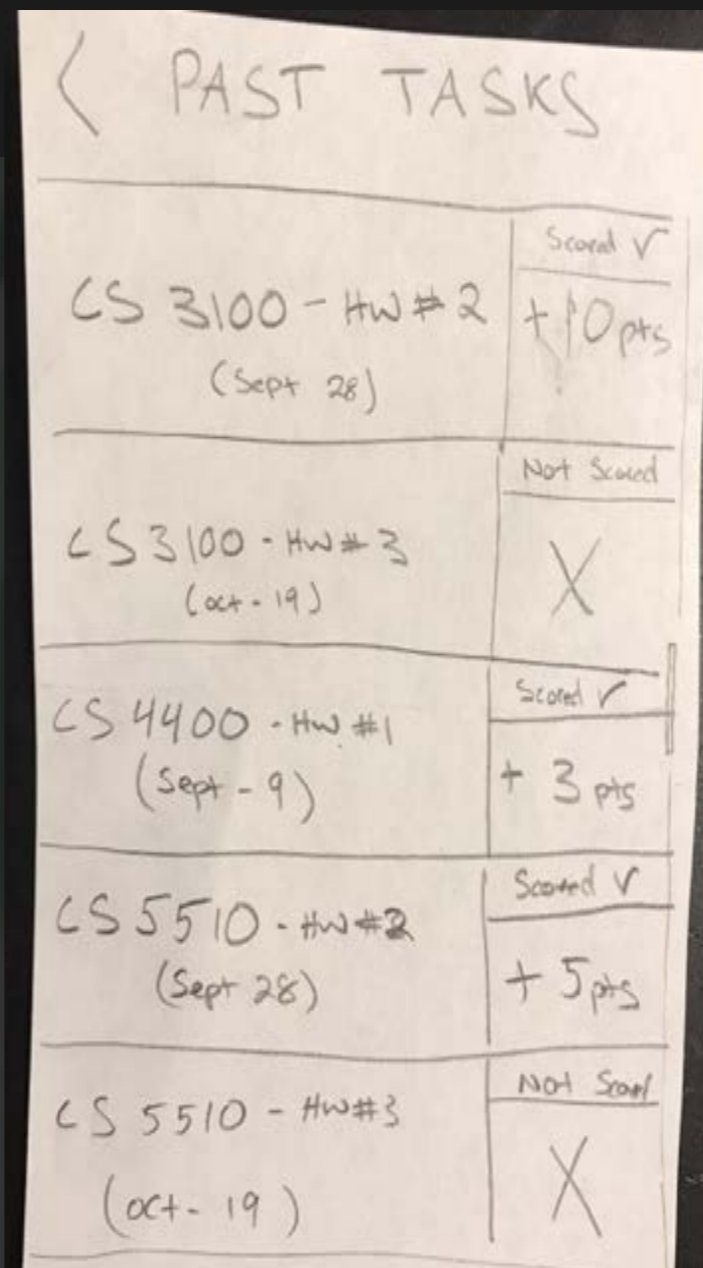 < PAST TASKS
CS 3100 - HW # 2
(Sept 28)
Scored ✓
+10 pts
CS 3100 - HW # 3
(oct - 19)
Not Scored
X
CS 4400 - HW #1
(Sept - 9)
Scored ✓
+ 3 pts
CS 5510 - HW #2
(Sept 28)
Scored ✓
+ 5 pts
CS 5510 - HW #3
(oct - 19)
Not Scored
X